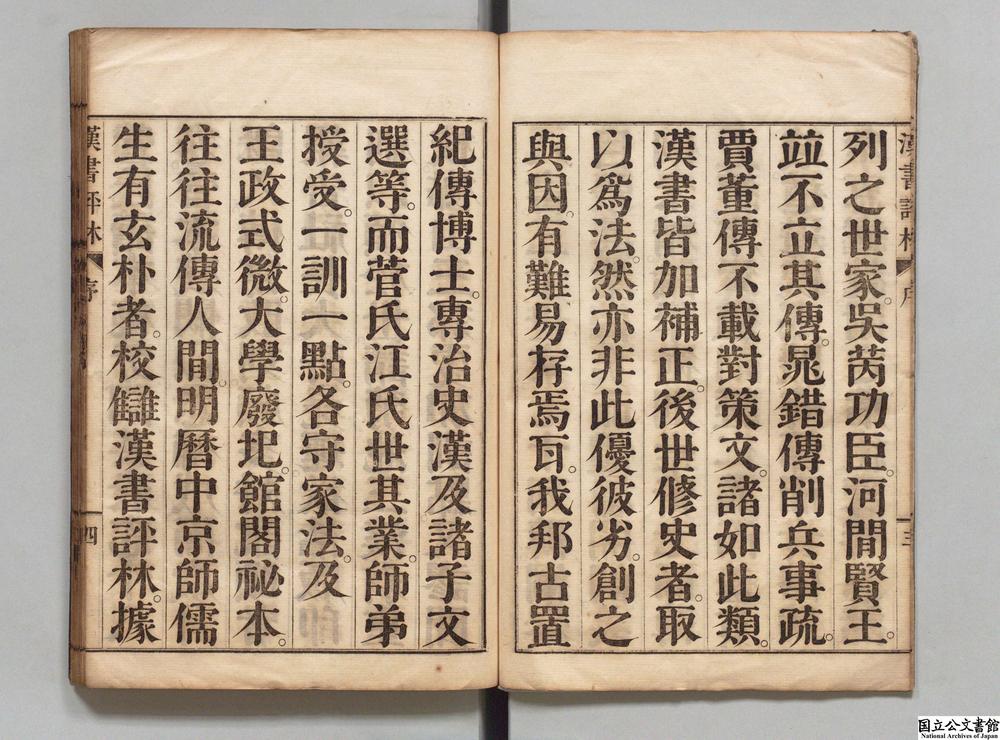 漢書評林 序 三
列之世家。吳芮功臣。河間賢王。
竝不立其傳。鼂錯傳削兵事疏。
賈董傳不載對策文。諸如此類。
漢書皆加補正。後世修史者。取
以爲法。然亦非此優彼劣。創之
與因。有難易存焉耳。我邦古置
紀傳博士。專治史漢及諸子文
選等。而菅氏江氏世其業。師弟
授受。一訓一點。各守家法。及
王政式微。大學廢圯。館閣祕本。
往往流傳人間。明曆中京師儒
生有玄朴者。校讎漢書評林。據
漢書評林 序 四
国立公文書館
National Archives of Japan